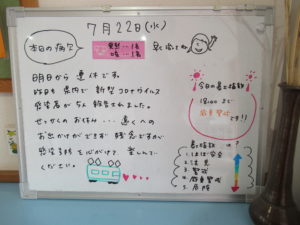 7月22日(水)
本日の病欠
発熱…1名
早く治してね
明日から 連休です。
昨日も 県内で 新型コロナウイルス
感染者が 5人 報告されました。
せっかくのお休み… 遠くへの
お出かけができず 残念ですが
感染予防を心がけて 楽しんで
ください。
今日の暑さ指数
厳重警戒
です!!
暑さ指数は
1. ほぼ安全
2. 注意
3. 警戒
4. 厳重警戒
5. 危険